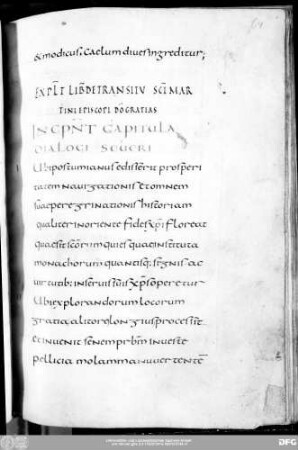 & modicus: caelum diues ingreditur;
EXPLT LIB DE TRANSITV SCI MAR
TINI EPISCOPI DO GRATIAS
INCPNT CAPITULA
DIALOGI SEUERI
Ubi postumianus edisserit prosperi
tatem nauigationis & omnem
suae peregrinationis historiam
qualiter in oriente fides xpi floreat
quae sit scorum quies quae instituta
monachorum quantisq; signis ac
uirtutib; in seruis suis xps oper&ur
Ubi explorandorum locorum
gratia a litore longius process
& inuenit senem prbm in ueste
pellicia molam manu uertent
DFG